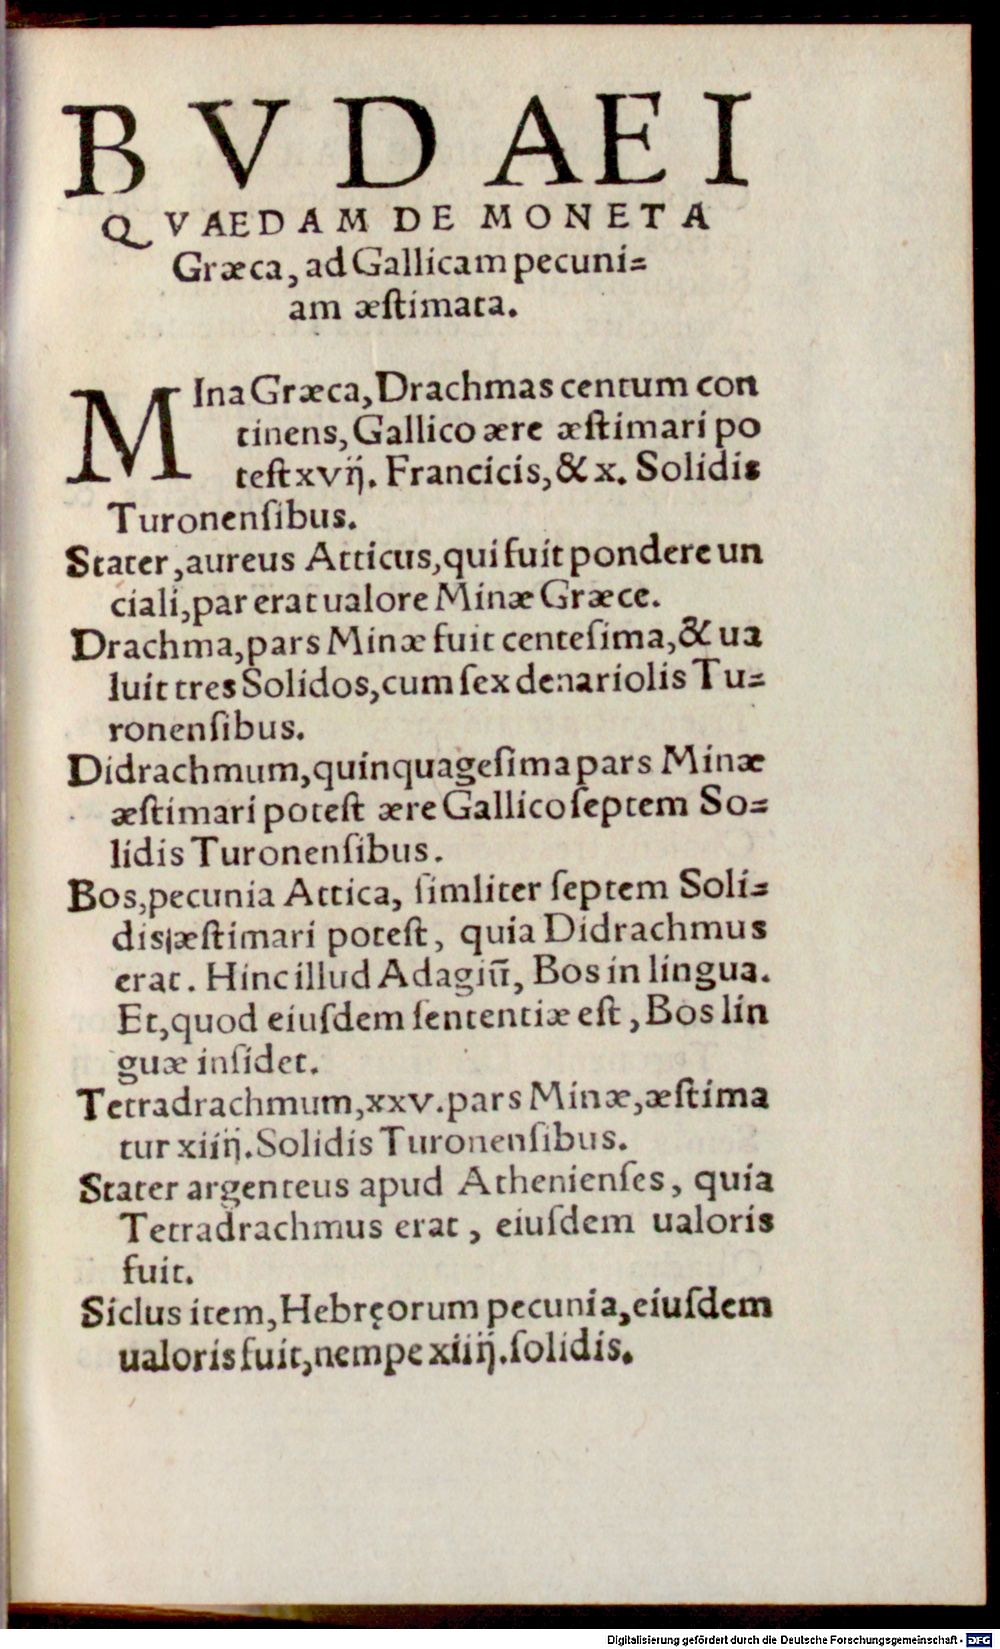 BVDAEI
QVAEDAM DE MONETA
Græca, ad Gallicam pecuni=
am æstimata.
MIna Græca, Drachmas centum con
tinens, Gallico ære æstimari po
test xvij. Francicis, & x. Solidis
Turonensibus.
Stater, aureus Atticus, qui fuit pondere un
ciali, par erat ualore Minæ Græce.
Drachma, pars Minæ fuit centesima, & ua
luit tres Solidos, cum sex denariolis Tu=
ronensibus.
Didrachmum, quinquagesima pars Minæ
æstimari potest ære Gallico septem So=
lidis Turonensibus.
Bos, pecunia Attica, simliter septem Soli=
dis æstimari potest, quia Didrachmus
erat. Hinc illud Adagiũ, Bos in lingua.
Et, quod eiusdem sententiæ est, Bos lin
guæ insidet.
Tetradrachmum, xxv. pars Minæ, æstima
tur xiiij. Solidis Turonensibus.
Stater argenteus apud Athenienses, quia
Tetradrachmus erat, eiusdem ualoris
fuit.
Siclus item, Hebręorum pecunia, eiusdem
ualoris fuit, nempe xiiij. solidis.
Digitalisierung gefördert durch die Deutsche Forschungsgemeinschaft - DFG